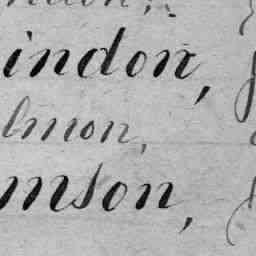 indon,
lmon,
mson,